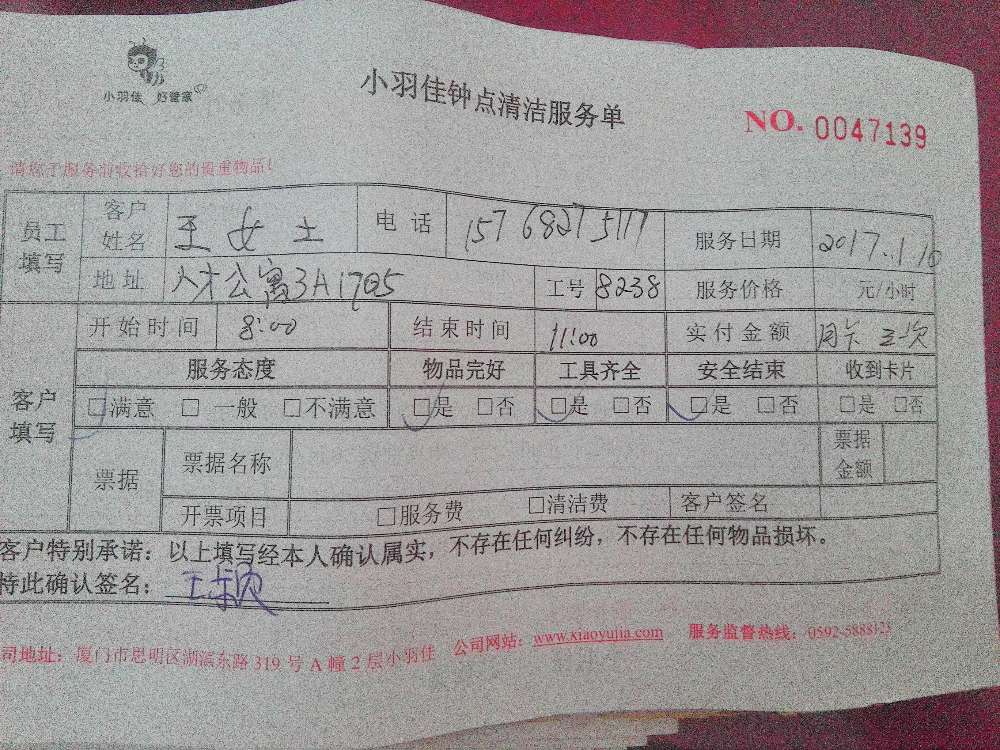 小羽佳 好管家
小羽佳钟点清洁服务单
NO. 0047139
请您于服务前收拾好您的贵重物品!
员工填写 客户姓名 王女士 电话 15768275117 服务日期 2017.1.10
地址 人才公寓3A1705 工号 8238 服务价格 元/小时
开始时间 8:00 结束时间 11:00 实付金额 周卡 三次
客户填写 服务态度 物品完好 工具齐全 安全结束 收到卡片
□满意 □一般 □不满意 □是 □否 □是 □否 □是 □否 □是 □否
票据 票据名称 票据金额
开票项目 □服务费 □清洁费 客户签名
客户特别承诺:以上填写经本人确认属实,不存在任何纠纷,不存在任何物品损坏。
特此确认签名: 王
司地址:厦门市思明区湖滨东路319号A幢2层小羽佳 公司网站:www.xiaoyujia.com 服务监督热线:0592-5888123